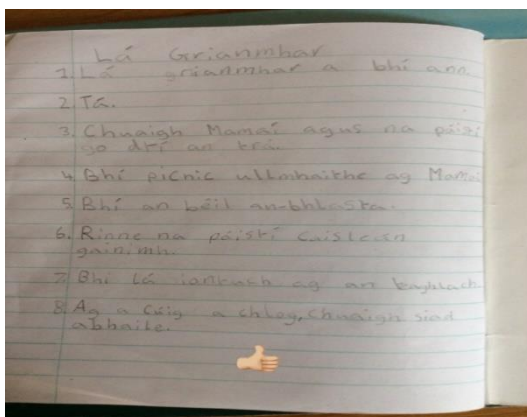 Lá Grianmhar
1. Lá grianmhar a bhí ann.
2. Tá.
3. Chuaigh Mamaí agus na páistí
go dtí an trá.
4. Bhí picnic ullmhaithe ag Mamaí
5. Bhí an béil an-bhlasta.
6. Rinne na páistí caisleain
gainimh.
7. Bhi lá iontach ag an
8. Ag a cúig a chlog, Chuaigh siad
abhaile.